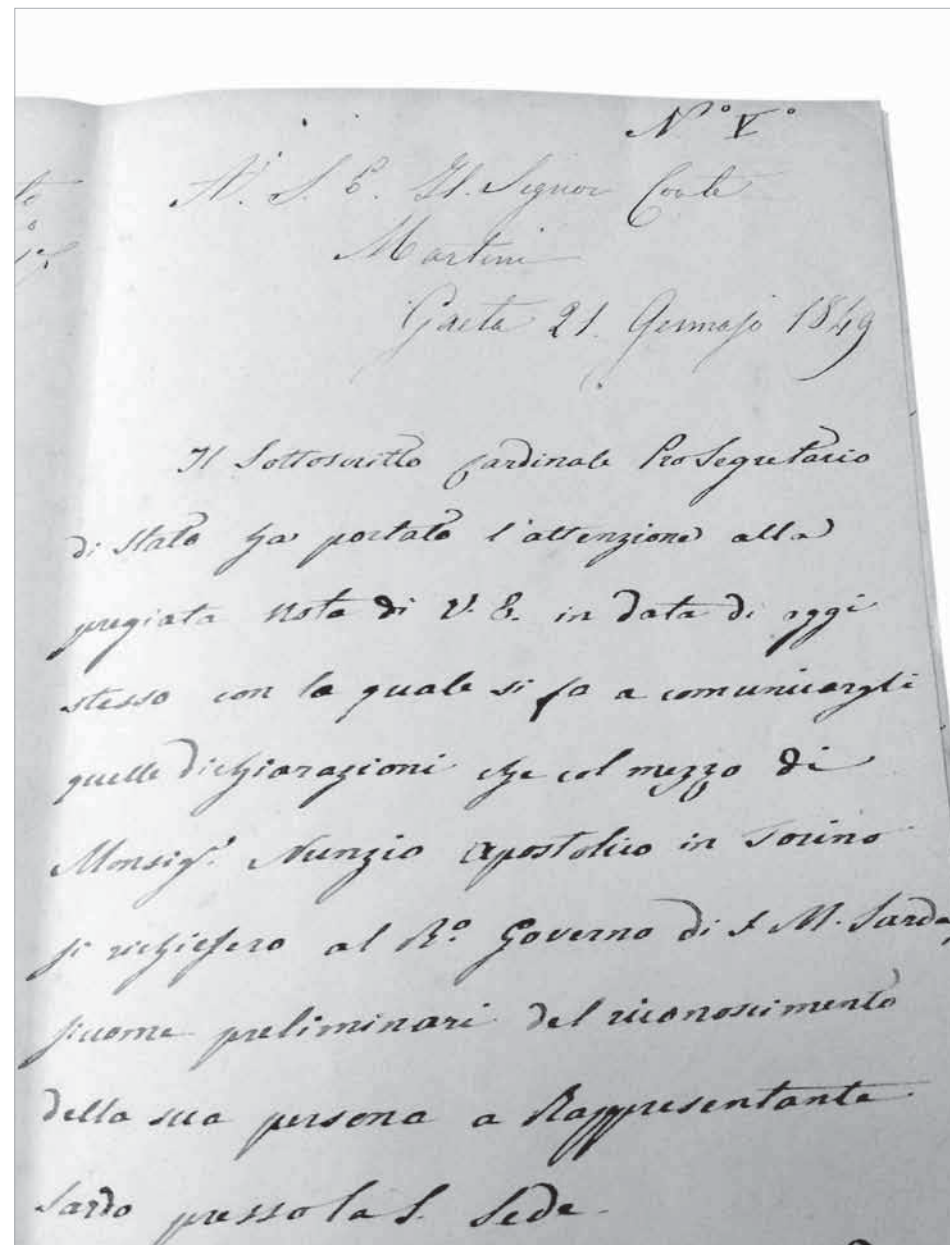 N° V°
A S. E. Il Signor Conte
Martini
Gaeta 21. Gennajo 1849
Il Sottoscritto Cardinale ProSegretario
di Stato ha portato l'attenzione alla
pregiata Nota di V. E. in data di oggi
stesso con la quale si fa a comunicargli
quelle dichiarazioni che col mezzo di
Monsigr. Nunzio Apostolico in Torino
si richiesero al R.° Governo di S. M. Sarda,
siccome preliminari del riconoscimento
della sua persona a Rappresentante
Sardo presso la S. Sede.